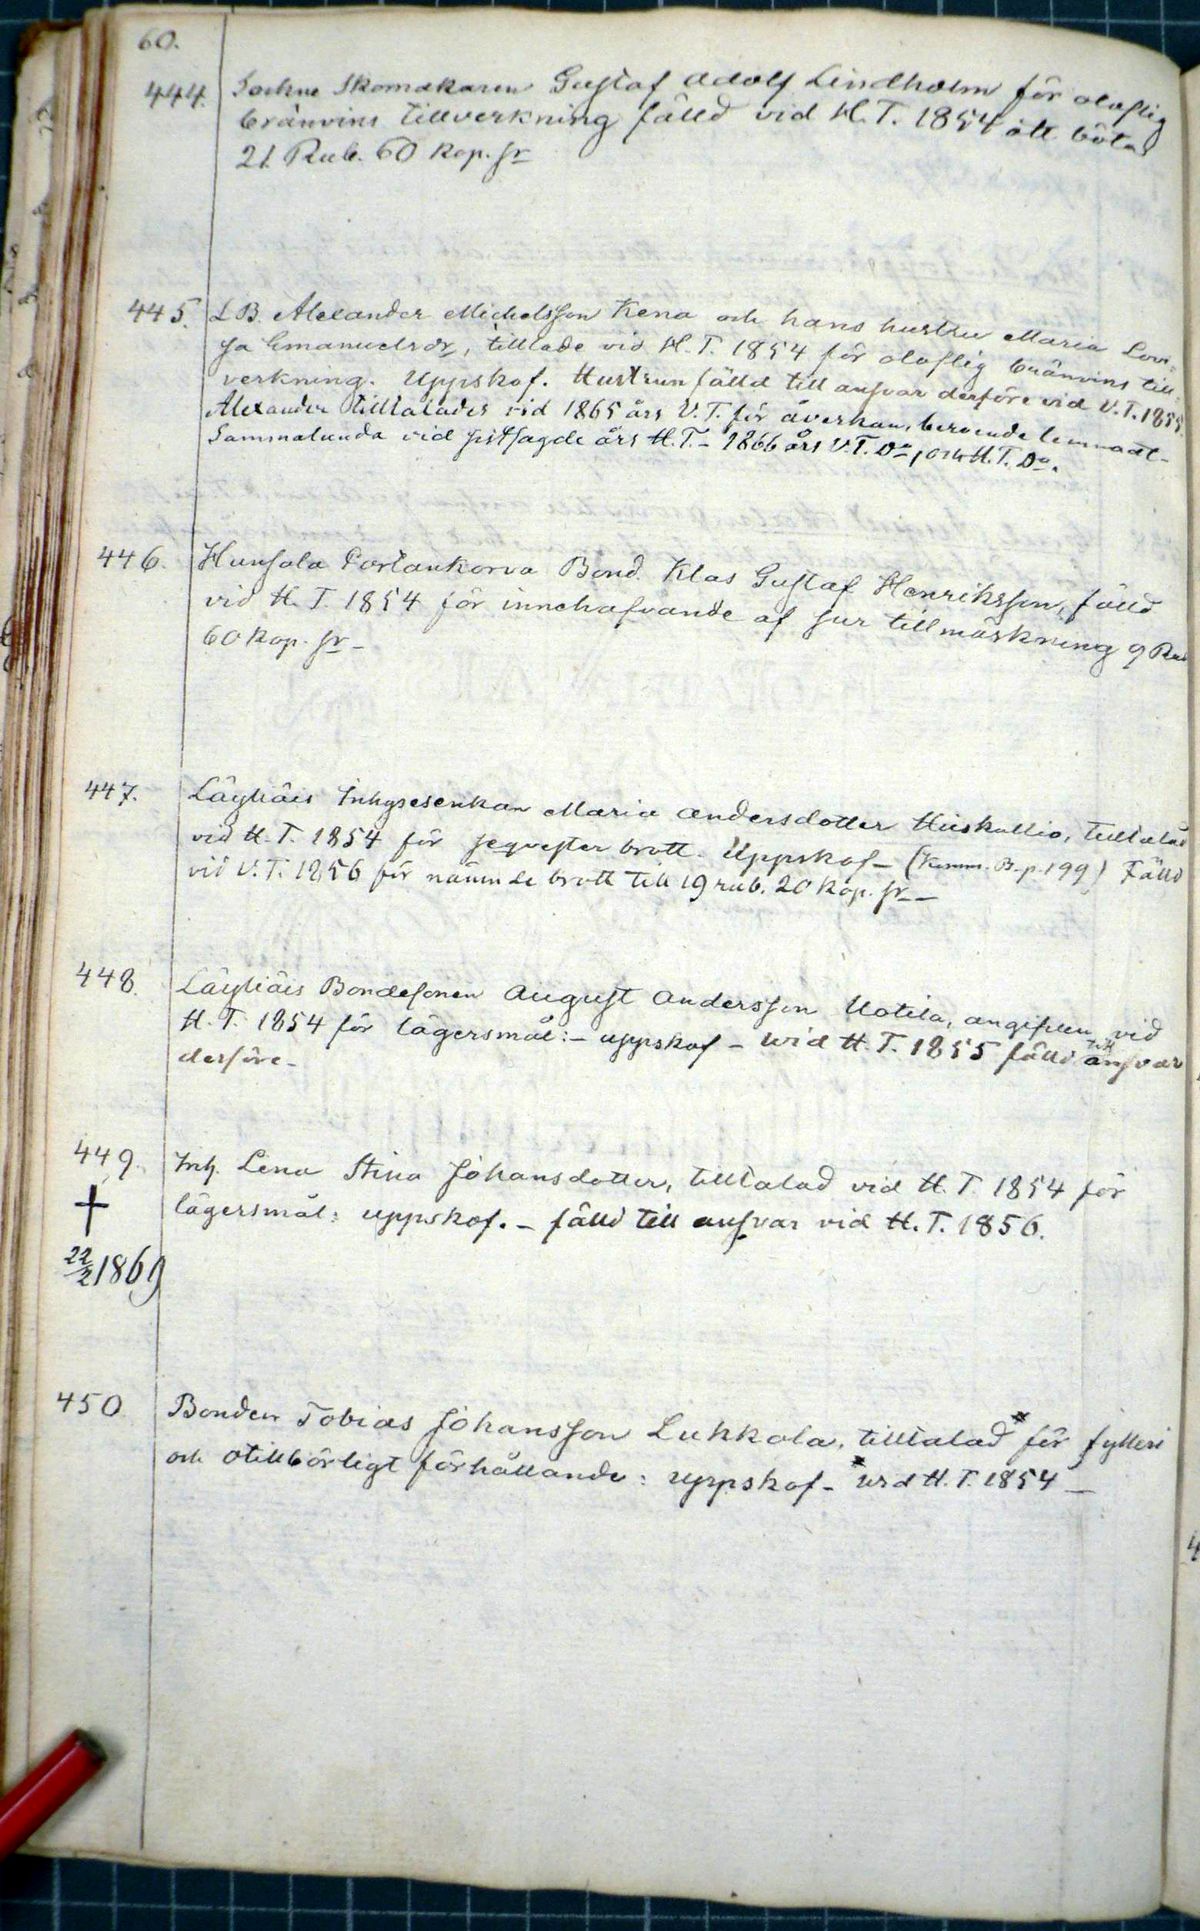 60.
444. Sockne Skomakaren Gustaf Adolf Lindholm för olaflig
bränvins tillverkning fälld vid H. T. 1854 att böta
21 Rub. 60 kop. sr
445. L B. Alexander Michelsson Kena och hans hustru Maria Lovi-
sa Emanuelsdr, tilltade vid H. T. 1854 för olaflig bränvins till-
verkning. Uppskof. Hustrun fälld till ansvar derföre vid V. T. 1855.
Alexander tilltalades vid 1865 års V. T. för åverkan, beroende lemnadt-
Sammalunda vid sistsagde års H. T. - 1866 års V. T. Do, och H. T. Do.
446. Hunsala Bond. Klas Gustaf Henriksson, fälld
vid H. T. 1854 för innehafvande af sur tillmäskning 9 Rub
60 kop. sr -
447. Läyliäis Inhysesenkan Maria Andersdotter Hiiskallio, tilltalad
vid H. T. 1854 för seqvester brott. Uppskof - (Komm. B. p. 199) Fälld
vid V. T. 1856 för nämnde brott till 19 rub. 20 kop. sr -
448. Läyliäis Bondesonen August Andersson Uotila, angifven vid
H. T. 1854 för lägersmål: - uppskof - vid H. T. 1855 fälld till ansvar
derföre -
449. Inh. Lena Stina Johansdotter, tilltalad vid H. T. 1854 för
lägersmål: uppskof. - fälld till ansvar vid H. T. 1856.
22/2 1869
450 Bonden Tobias Johansson Lukkala, tilltalad * för fylleri
och otillbörligt förhållande: uppskof - * vid H. T. 1854 -